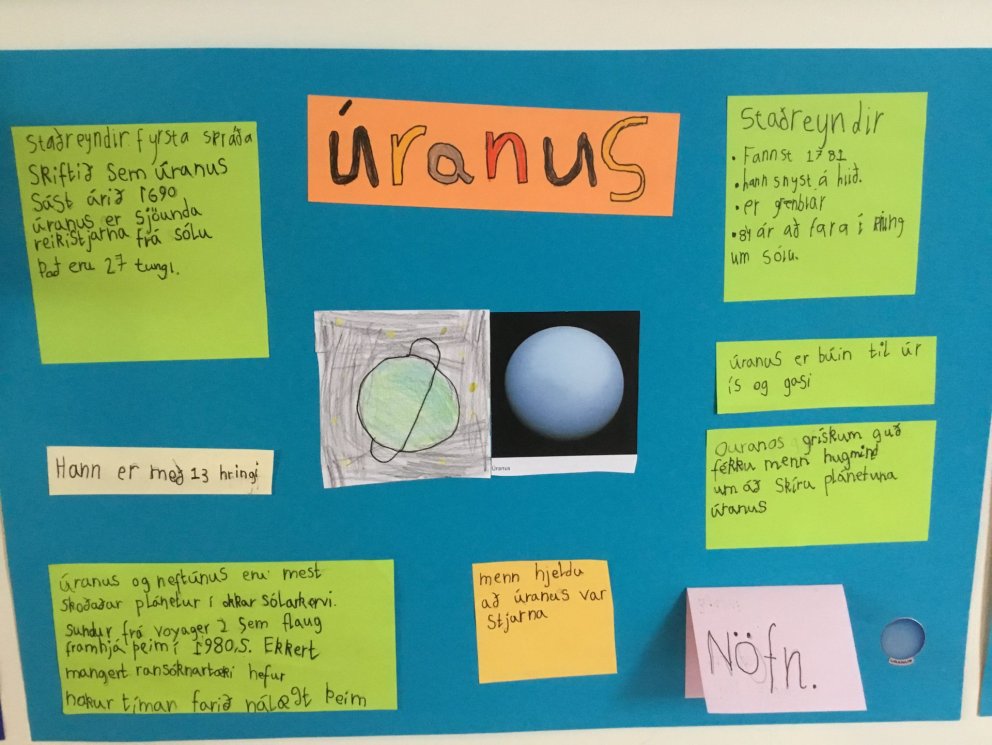 úranus
Staðreyndir fyrsta skráða
SKriftið sem úranus
Sást árið 1690
úranus er sjöunda
reikistjarna frá sólu
Það eru 27 tungl.
Staðreyndir
• Fannst 1781
• hann snyst á hlið.
• er grænblár
• 84 ár að fara í hring
um sólu.
úranus er búin til úr
ís og gasi
Ouranos grískum guð
fékku menn hugmind
um að skíru plánetuna
úranus
Uranus
Hann er með 13 hringi
úranus og neftúnus eru mest
skoðaðar plánetur í okkar sólarkervi.
sundur frá voyager 2 sem flaug
framhjá þeim í 1980,S. Ekkert
mangert ransóknartæki hefur
nokur tíman farið nálægt þeim
menn hjeldu
að úranus var
Stjarna
Nöfn.
URANUS